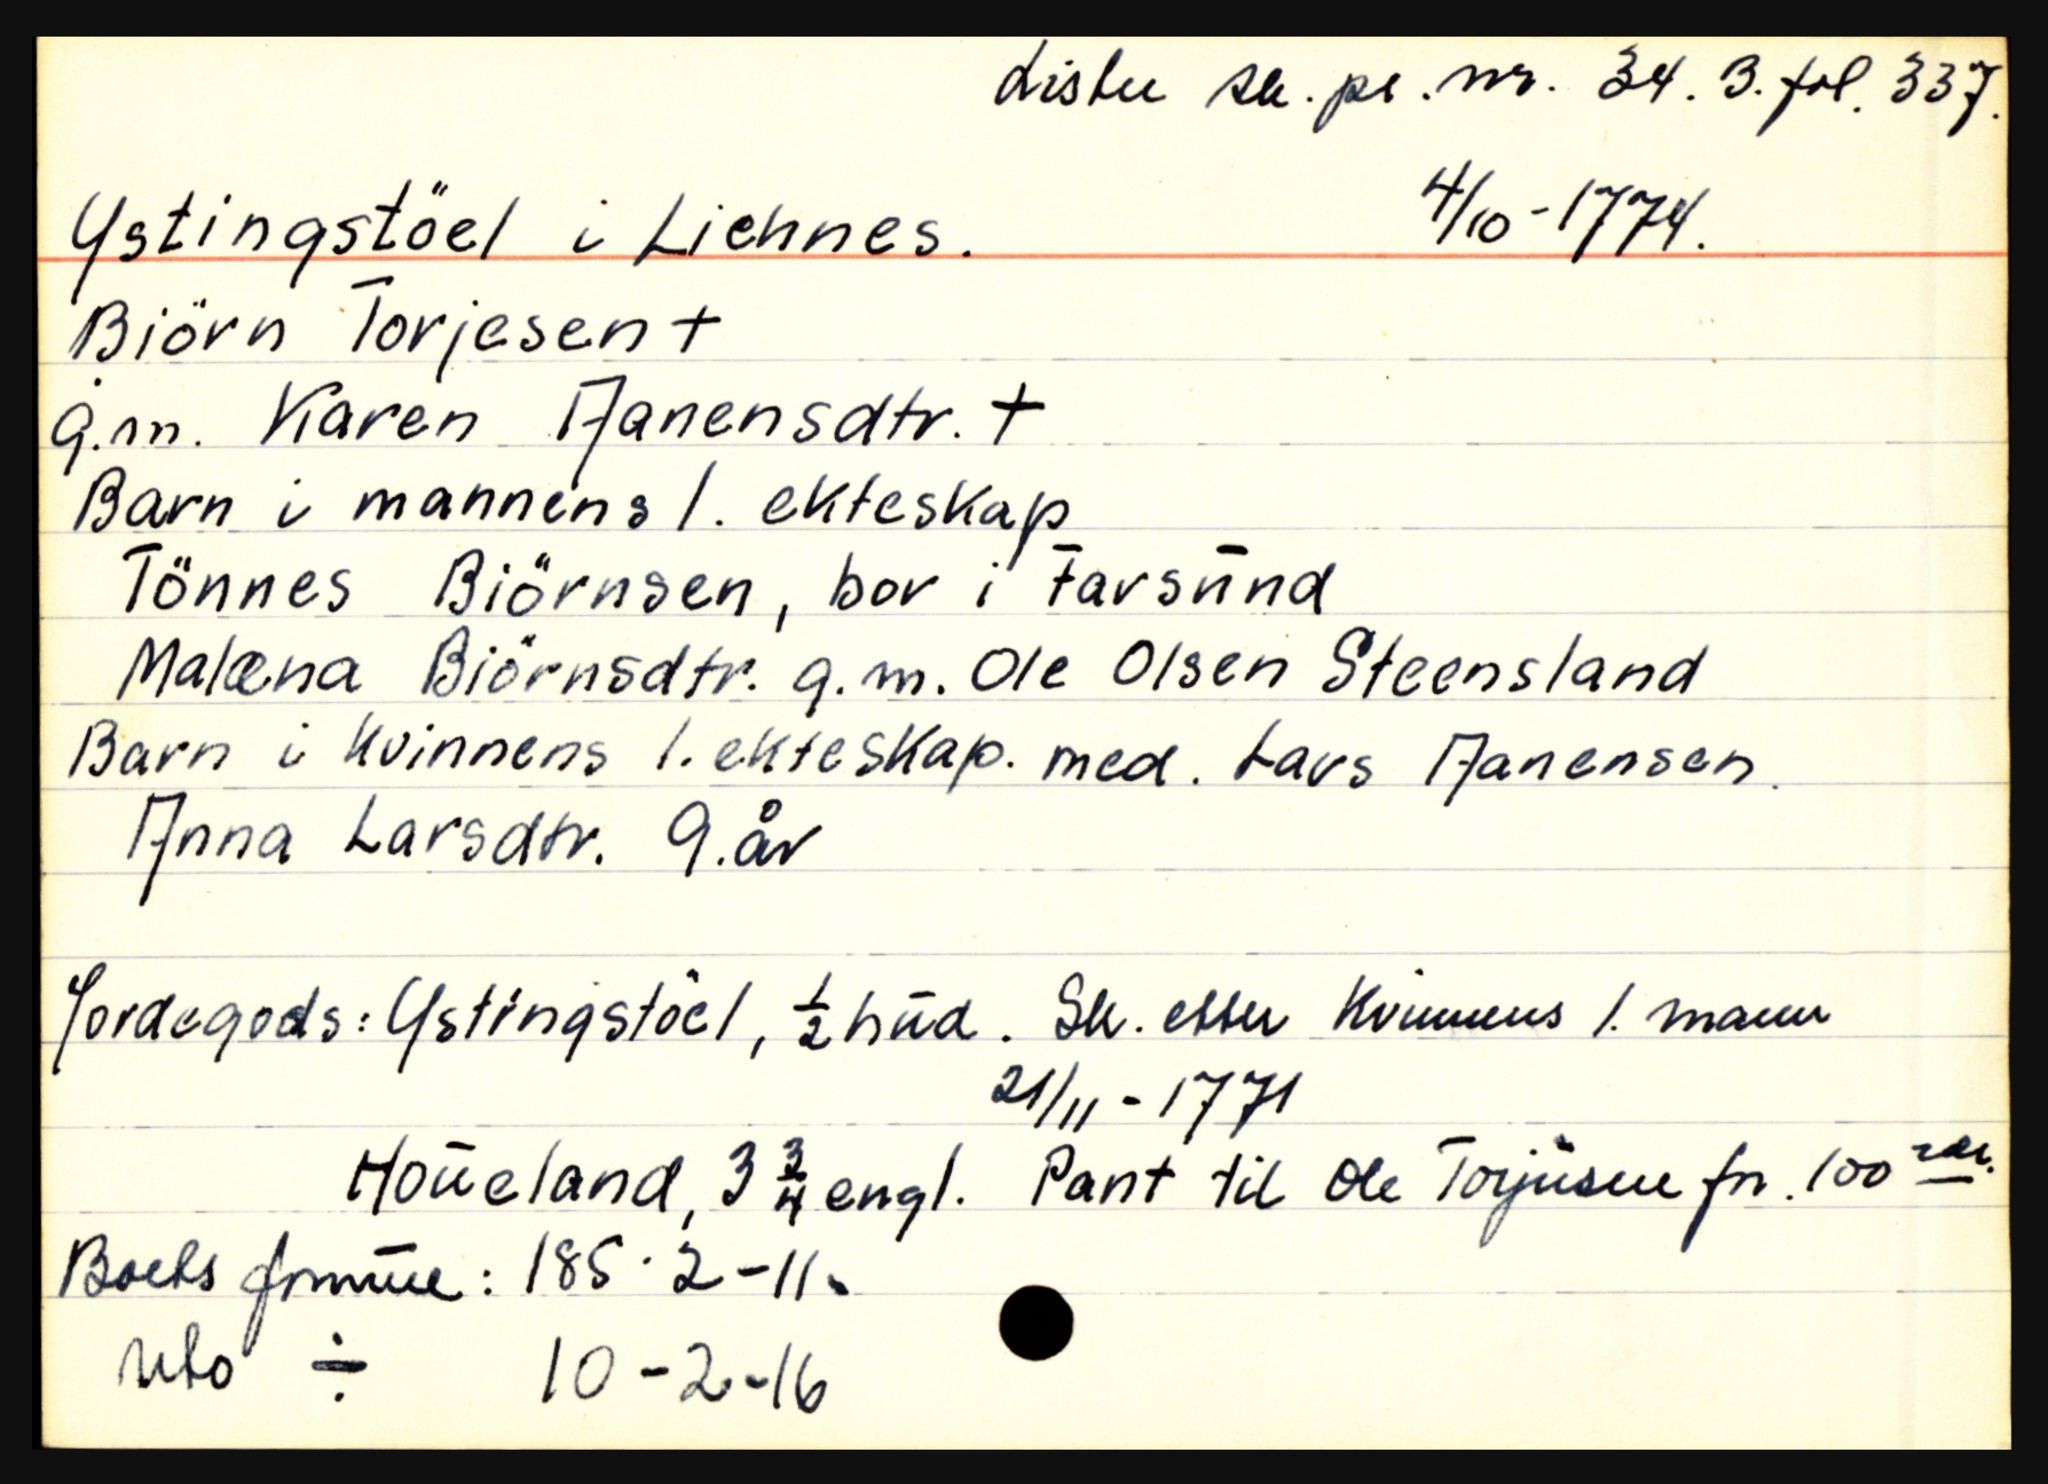 Lister sk. pr. nr. 34. B. fol. 337.
4/10-1774.
Ystingstöel i Liehnes.
Biörn Torjesen +
g.m. Karen Aanensdtr. +
Barn i mannens 1. ekteskap
Tönnes Biörnsen, bor i Farsūnd
Malena Biörnsdtr. g.m. Ole Olsen Steensland
Barn i kvinnens 1. ekteskap. med. Lars Aanensen.
Anna Larsdtr. 9. år
Jordegods: Ystingstöel, 1/2 hūd. Sk. etter kvinnens 1. mann
21/11-1771
Hoūeland, 3 3/4 engl. Pant til Ole Torjūsen for. 100 rdr.
Boets formūe: 185-2-11.
Nto ÷ 10-2-16